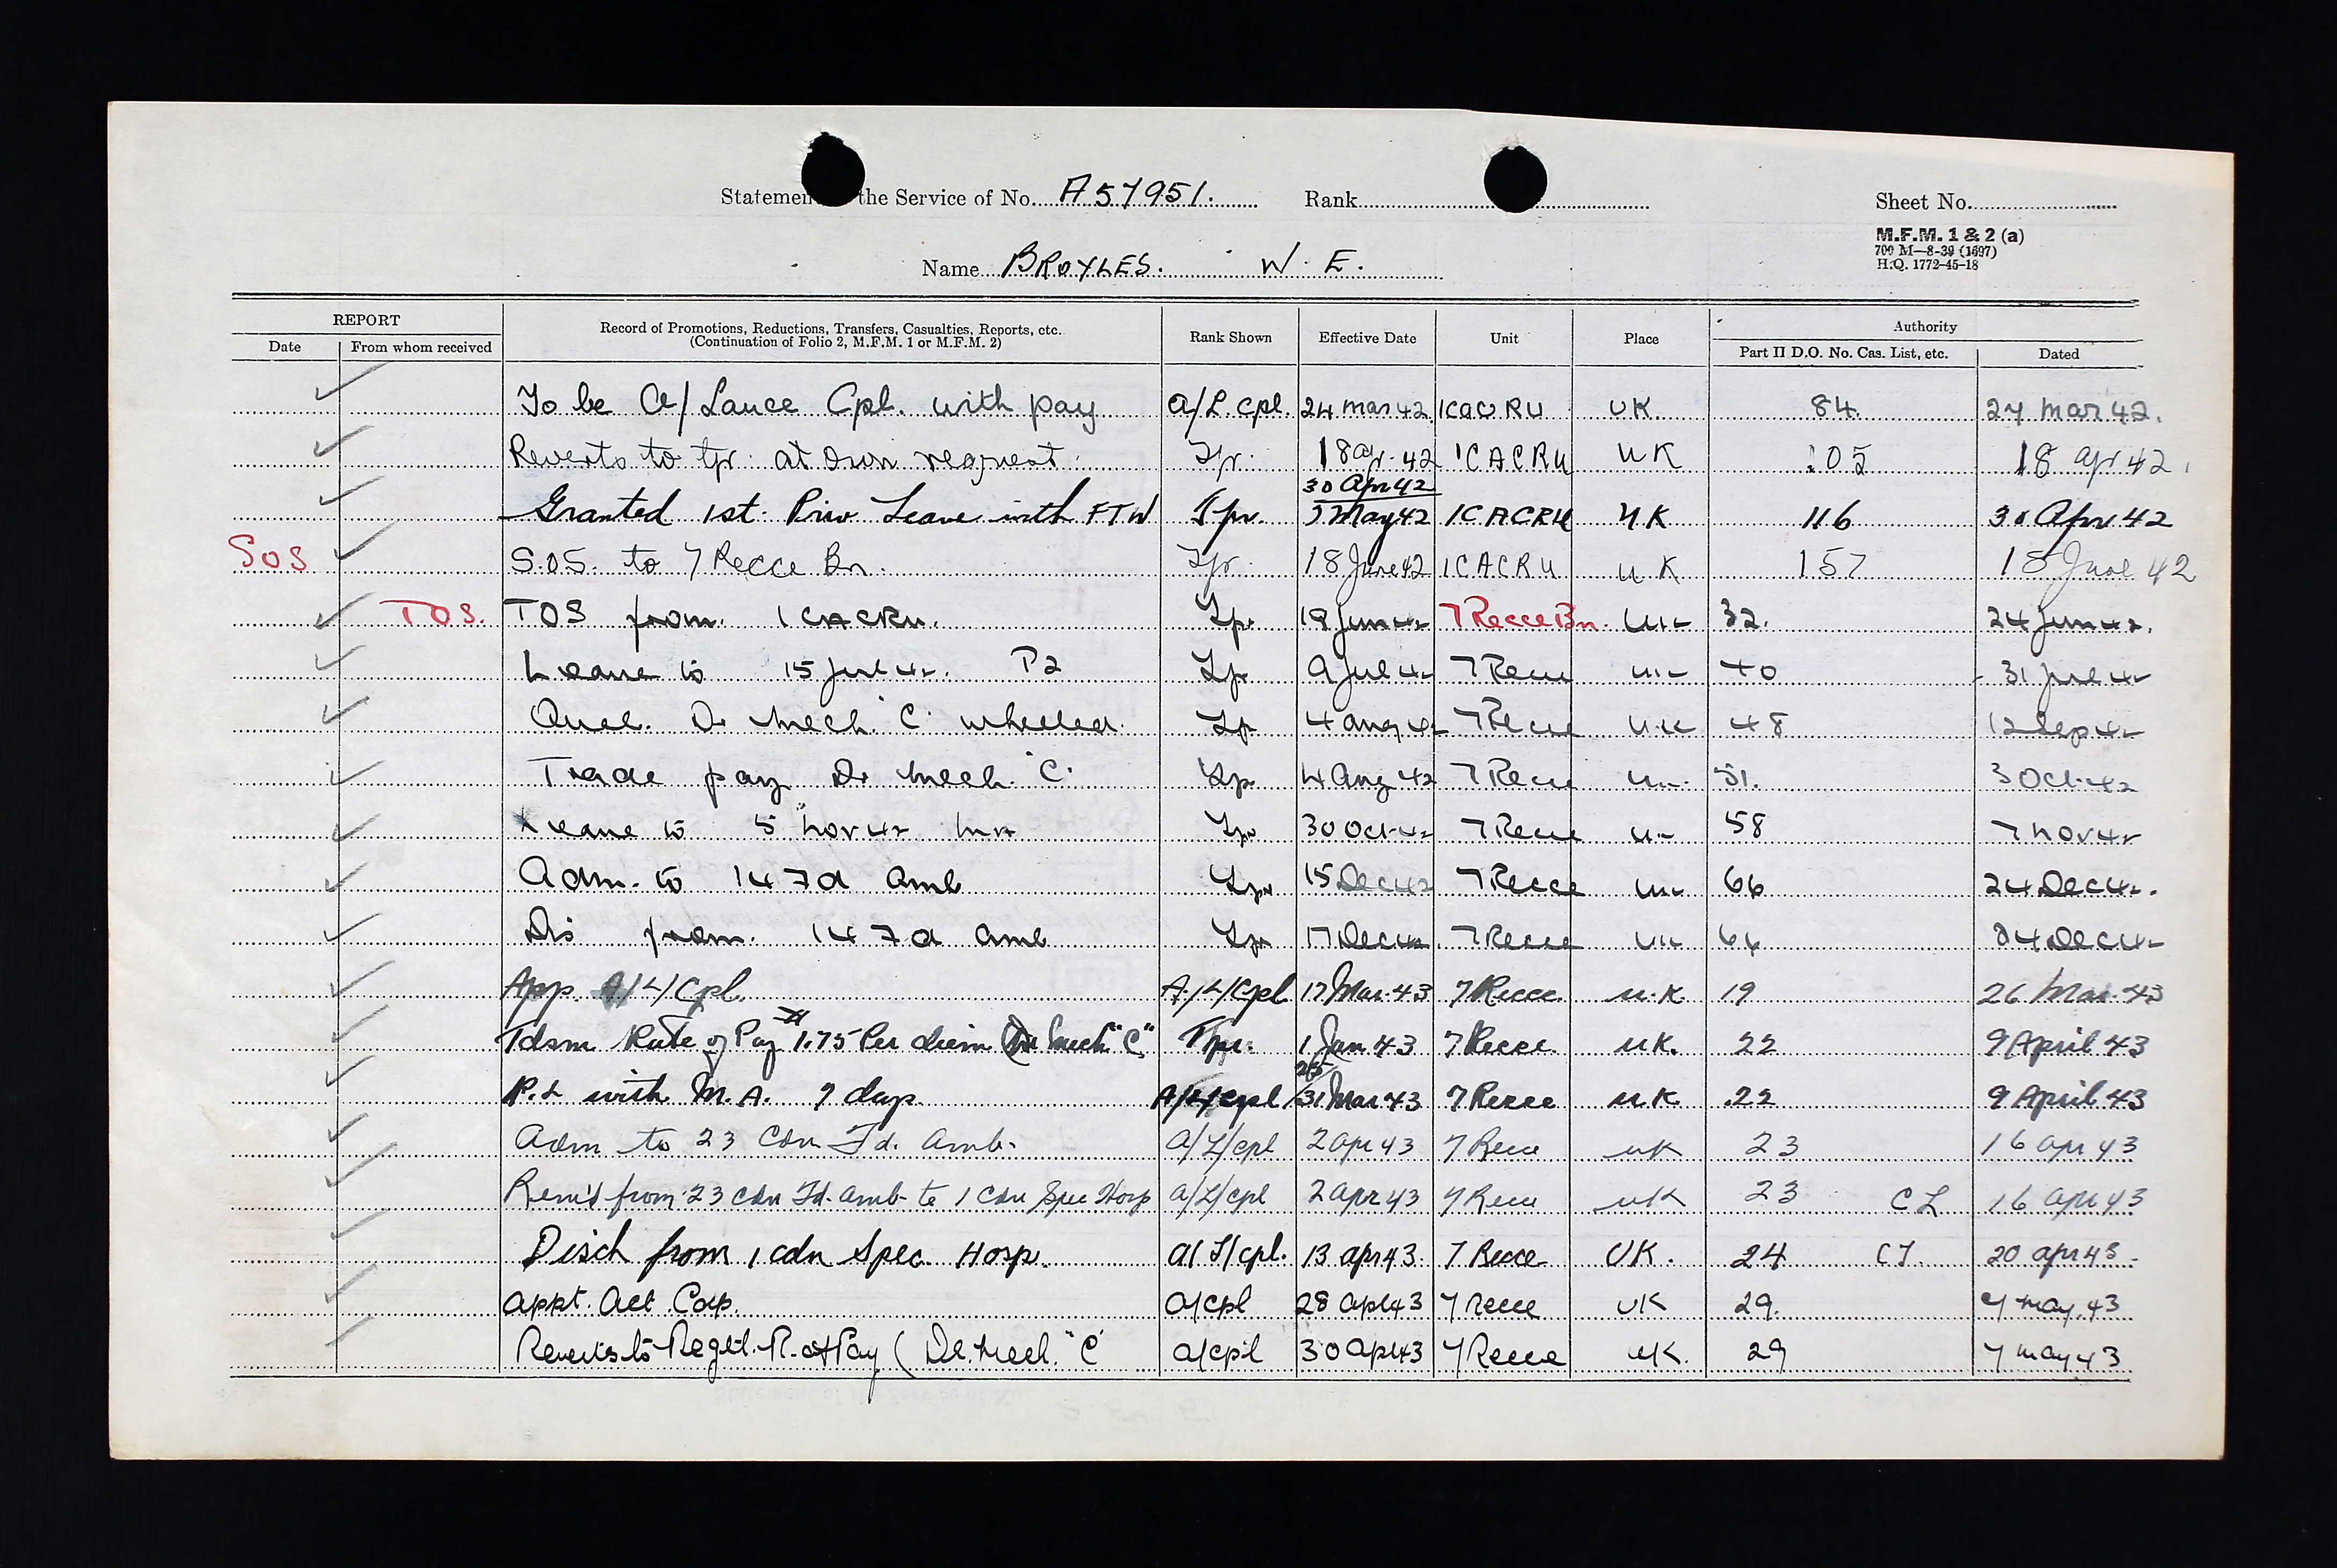 Statement the Service of No. A57951. Rank Sheet No.
M.F.M. 1 & 2 (a)
700 M—8-39 (1697)
H.Q. 1772-45-18
Name BROYLES. W. E.
REPORT
Date From whom received
Record of Promotions, Reductions, Transfers, Casualties, Reports, etc.
(Continuation of Folio 2, M.F.M. 1 or M.F.M. 2)
Rank Shown Effective Date Unit Place
Authority
Part II D.O. No. Cas. List, etc. Dated
To be A/Lance Cpl. with pay A/L.cpl. 24 mar 42 1CACRU UK. 84. 24 mar 42.
Reverts to tpr. at own request Tpr. 18 apr. 42 1CACRU UK 105 18 apr 42.
30 Apr 42
Granted 1st. Priv Leave with FTW Tpr. 5 May 42 1CACRU UK 116 30 Apr 42
SOS S.O.S. to 7 Recce Bn. Tpr. 18 June 42 1CACRU UK 157 18 June 42
TOS. TOS from 1 CACRU. Tpr 19 Jun 42 7 Recce Bn. UK 32. 24 Jun 42.
Leave to 15 Jul 42. P2 Tpr 9 Jul 42 7 Recce UK 40 31 Jul 42
Qual. Dr Mech. "C" wheeled. Tpr 4 Aug 42 7 Recce U.K 48 12 Sep 42
Trade pay Dr Mech. "C" Tpr 4 Aug 42 7 Recce UK 51. 3 Oct 42
Leave to 5 Nov 42 Tpr 30 Oct 42 7 Recce UK 58 7 Nov 42
Adm. to 14 Fd Amb Tpr 15 Dec 42 7 Recce UK 66 24 Dec 42.
Dis from 14 Fd Amb Tpr 17 Dec 42 7 Recce UK 66 24 Dec 42
App. A/L/Cpl. A/L/Cpl 17 Mar. 43 7 Recce U.K 19 26 Mar. 43
Tdsm Rate of Pay 1.75 Per diem (Dr Mech "C" Tpr. 1 Jan 43 7 Recce UK. 22 9 April 43
25/
P.L with M.A. 7 days. A/L/cpl 31 Mar 43 7 Recce UK 22 9 April 43
Adm to 23 Cdn Fd. Amb. A/L/cpl 2 apr 43 7 Recce UK 23 16 apr 43
Rem'd from 23 Cdn Fd. Amb. to 1 Cdn Spec Hosp A/L/cpl 2 apr 43 7 Recce UK 23 CL 16 apr 43
Disch from 1 cdn Spec. Hosp. A/L/cpl. 13 apr 43. 7 Recce UK. 24 CL. 20 apr 43.
appt. Act. Cop. A/cpl 28 apl 43 7 recce UK 29. 7 may. 43
Reverts to Reg'tl. R. of Pay (Dr. Mech. "C" A/cpl 30 apl 43 7 Recce UK. 29 7 may 43